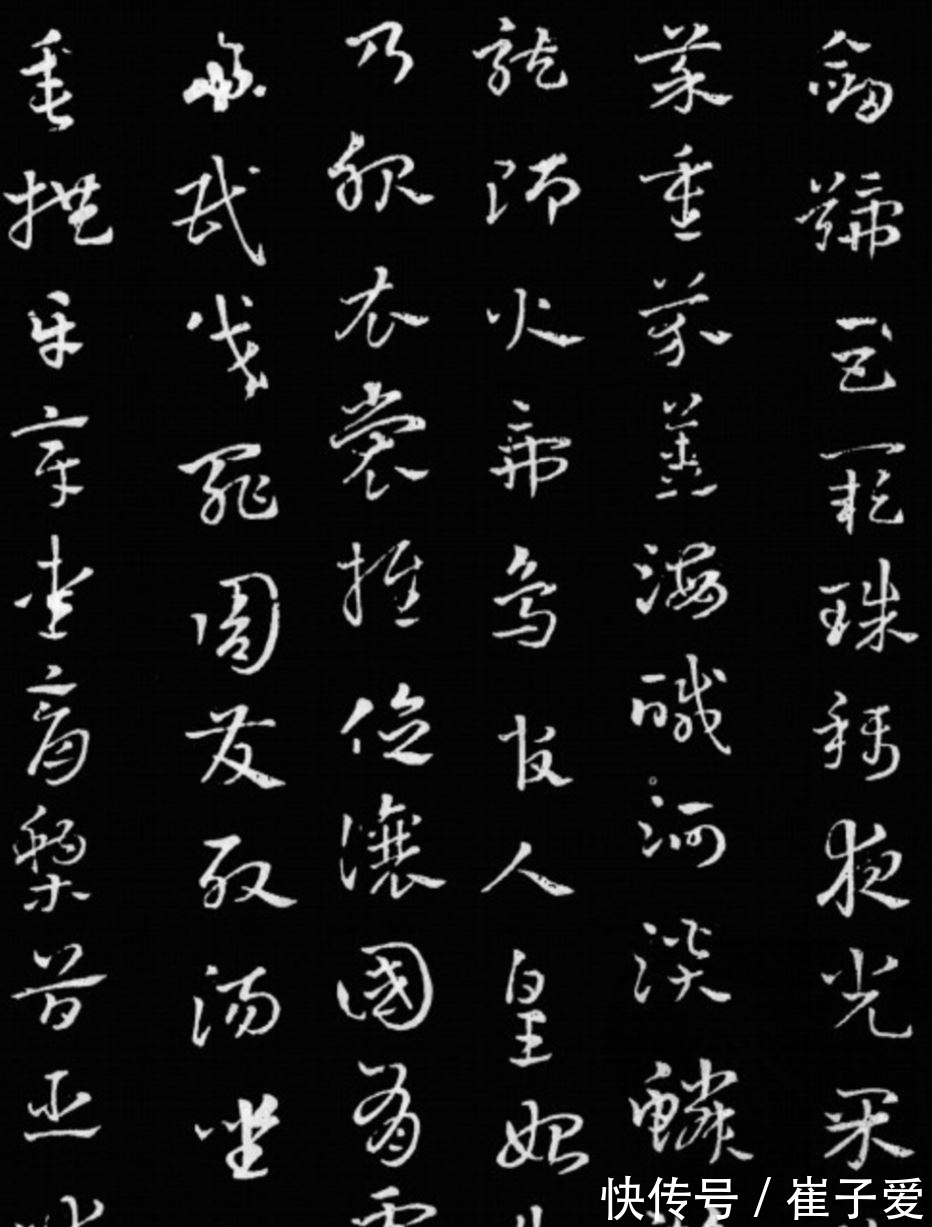 劍號巨闕珠稱夜光果
菜重芥薑海鹹河淡鱗
龍師火帝鳥官人皇始
乃服衣裳推位讓國有虞
民伐罪周發殷湯坐
垂拱平章愛育黎首臣
快传号 / 崔子爱